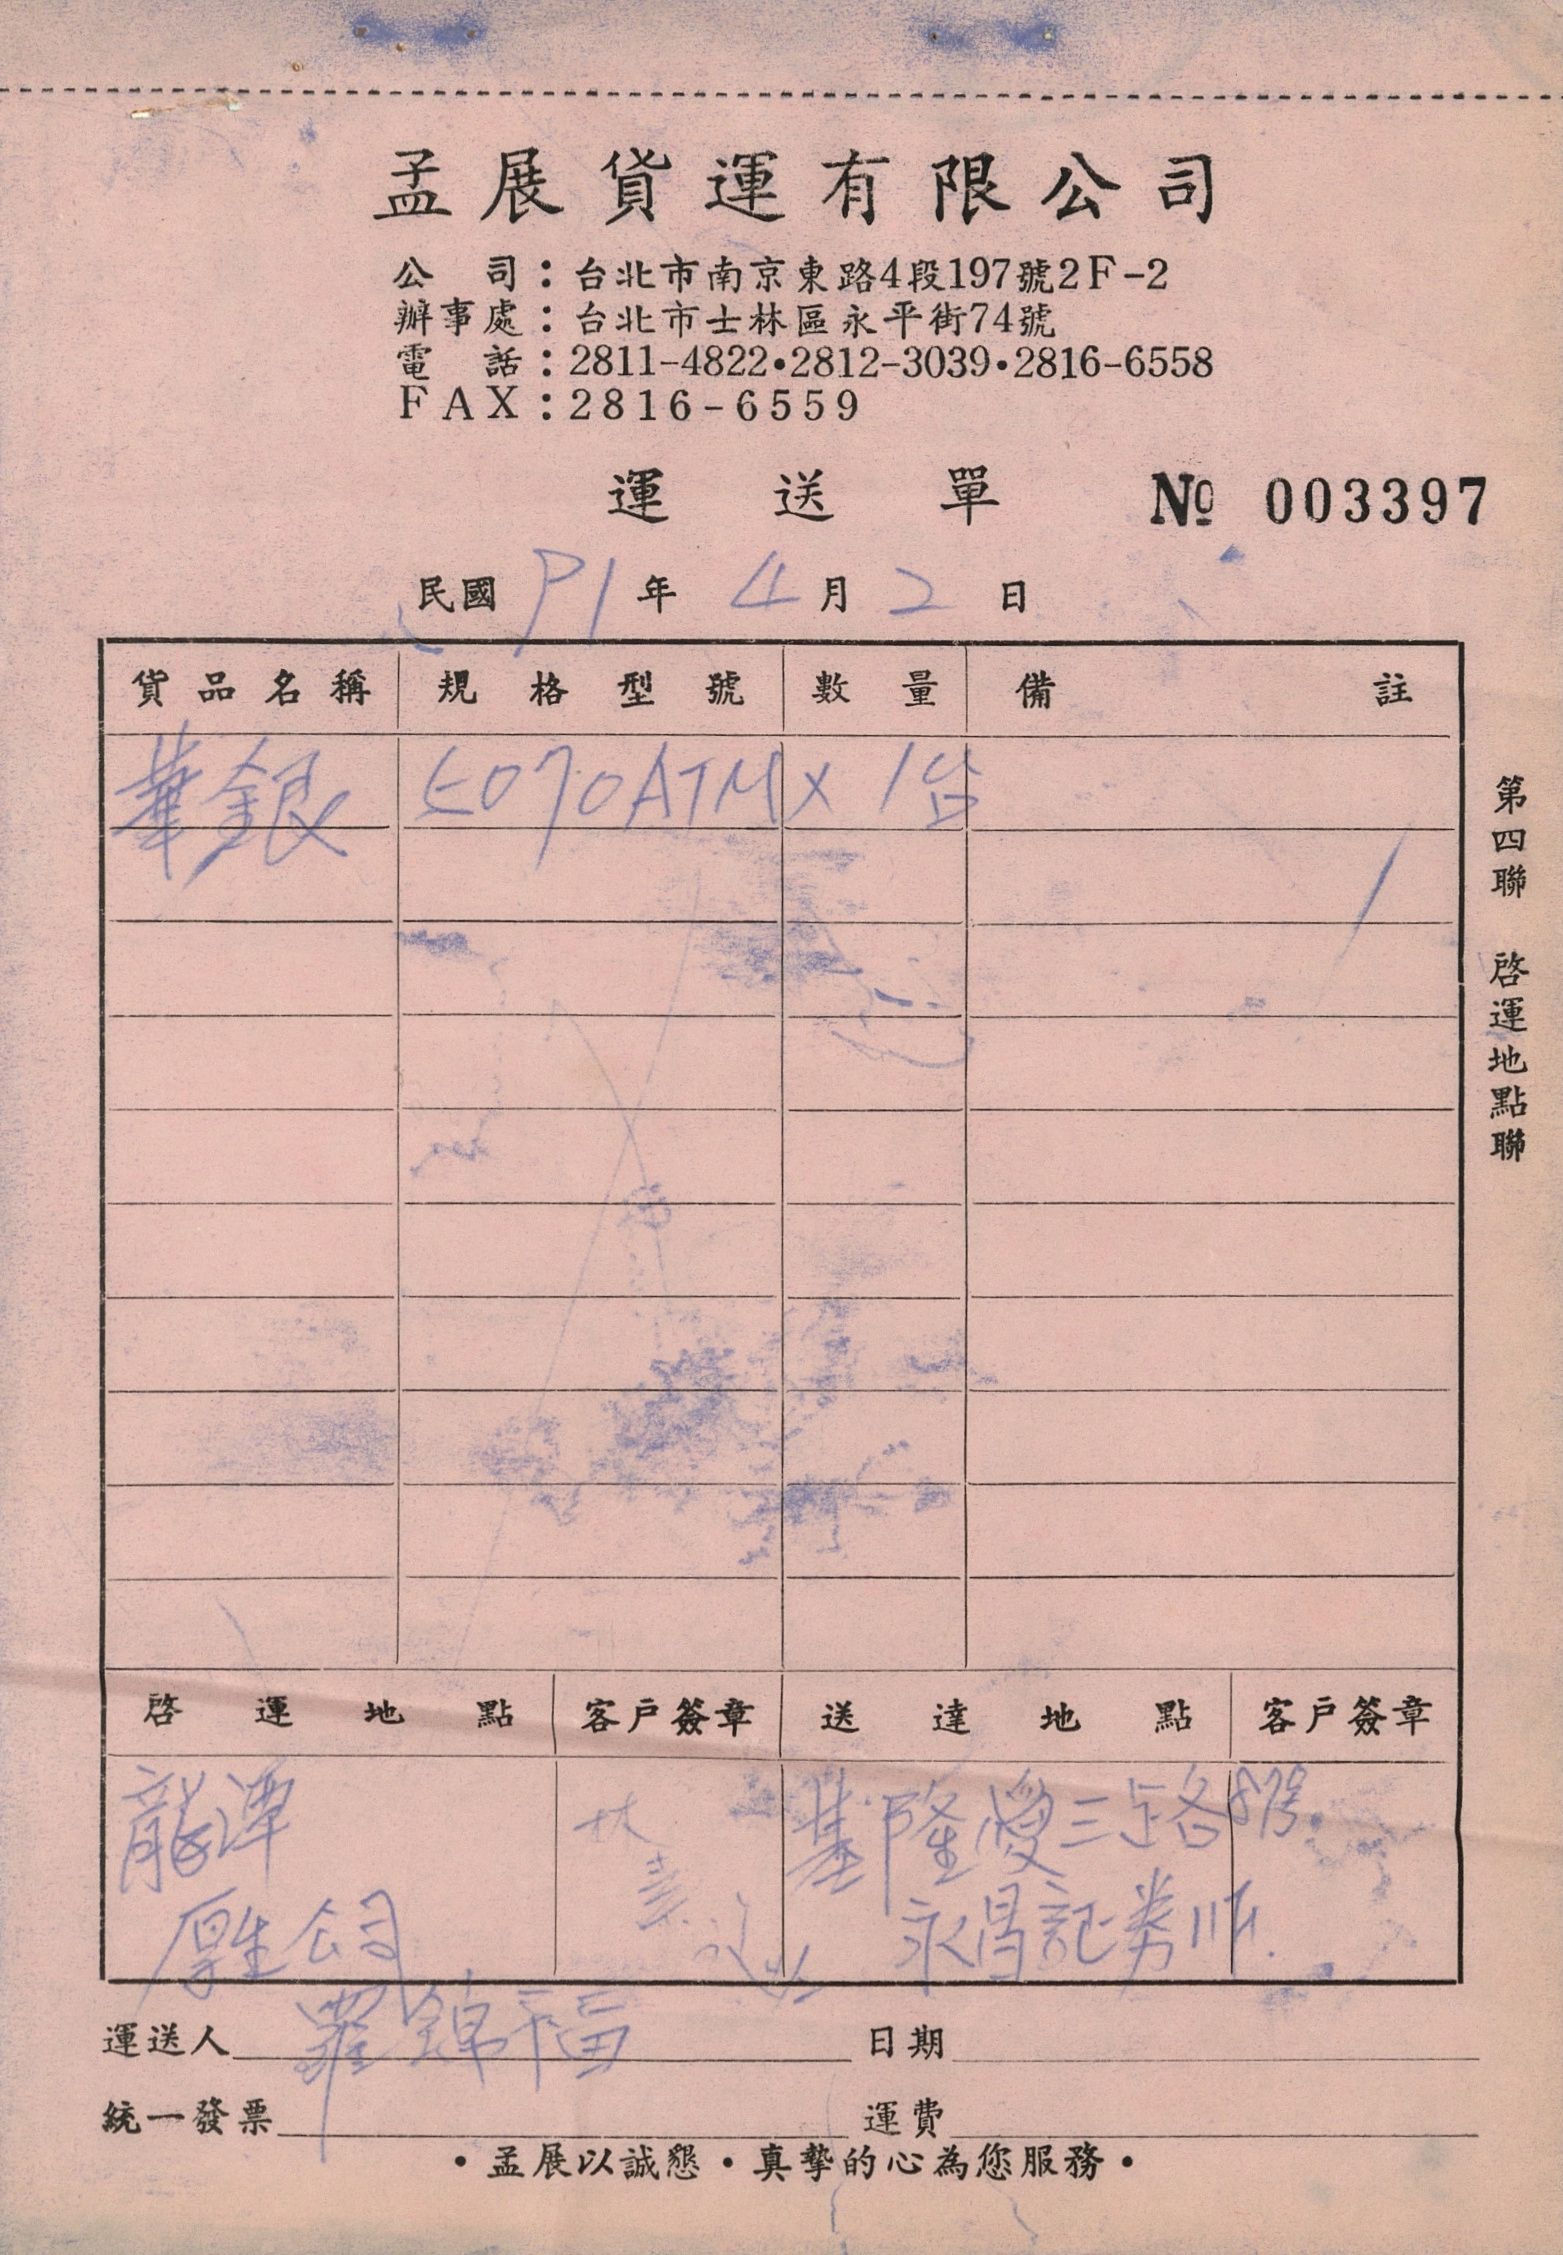 孟展貨運有限公司
公司：台北市南京東路4段197號2F-2
辦事處：台北市士林區永平街74號
電話：2811-4822•2812-3039•2816-6558
FAX：2816-6559
運送單 № 003397
民國 91 年 4 月 2 日
貨品名稱 規格型號 數量 備註
華銀 5070ATM X 1台
啓運地點 客戶簽章 送達地點 客戶簽章
龍潭 基隆愛三路87号
厚生公司 永昌証券
運送人 羅錦福 日期
統一發票 運費
•孟展以誠懇•真摯的心為您服務•
第四聯 啓運地點聯